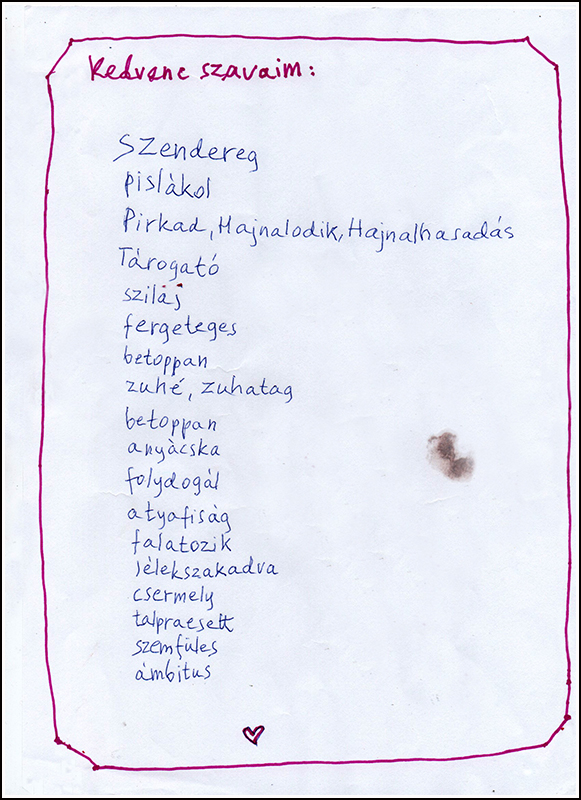 Kedvenc szavaim:
Szendereg
pislàkol
Pirkad, Hajnalodik, Hajnalhasadás
Tárogató
szilaj
fergeteges
betoppan
zuhé, zuhatag
betoppan
anyàcska
folydogál
atyafiság
falatozik
lélekszakadva
csermely
talpraesett
szemfüles
ámbitus